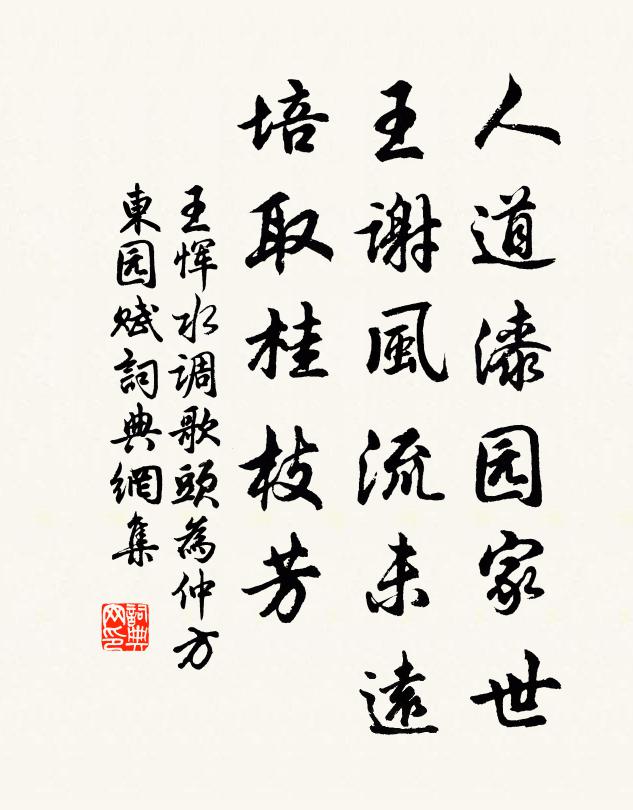 人道漆园家世
王謝風流未遠
培取桂枝芳
王恽水调歌頭為仲方
東园赋詞典網集
詞典网印